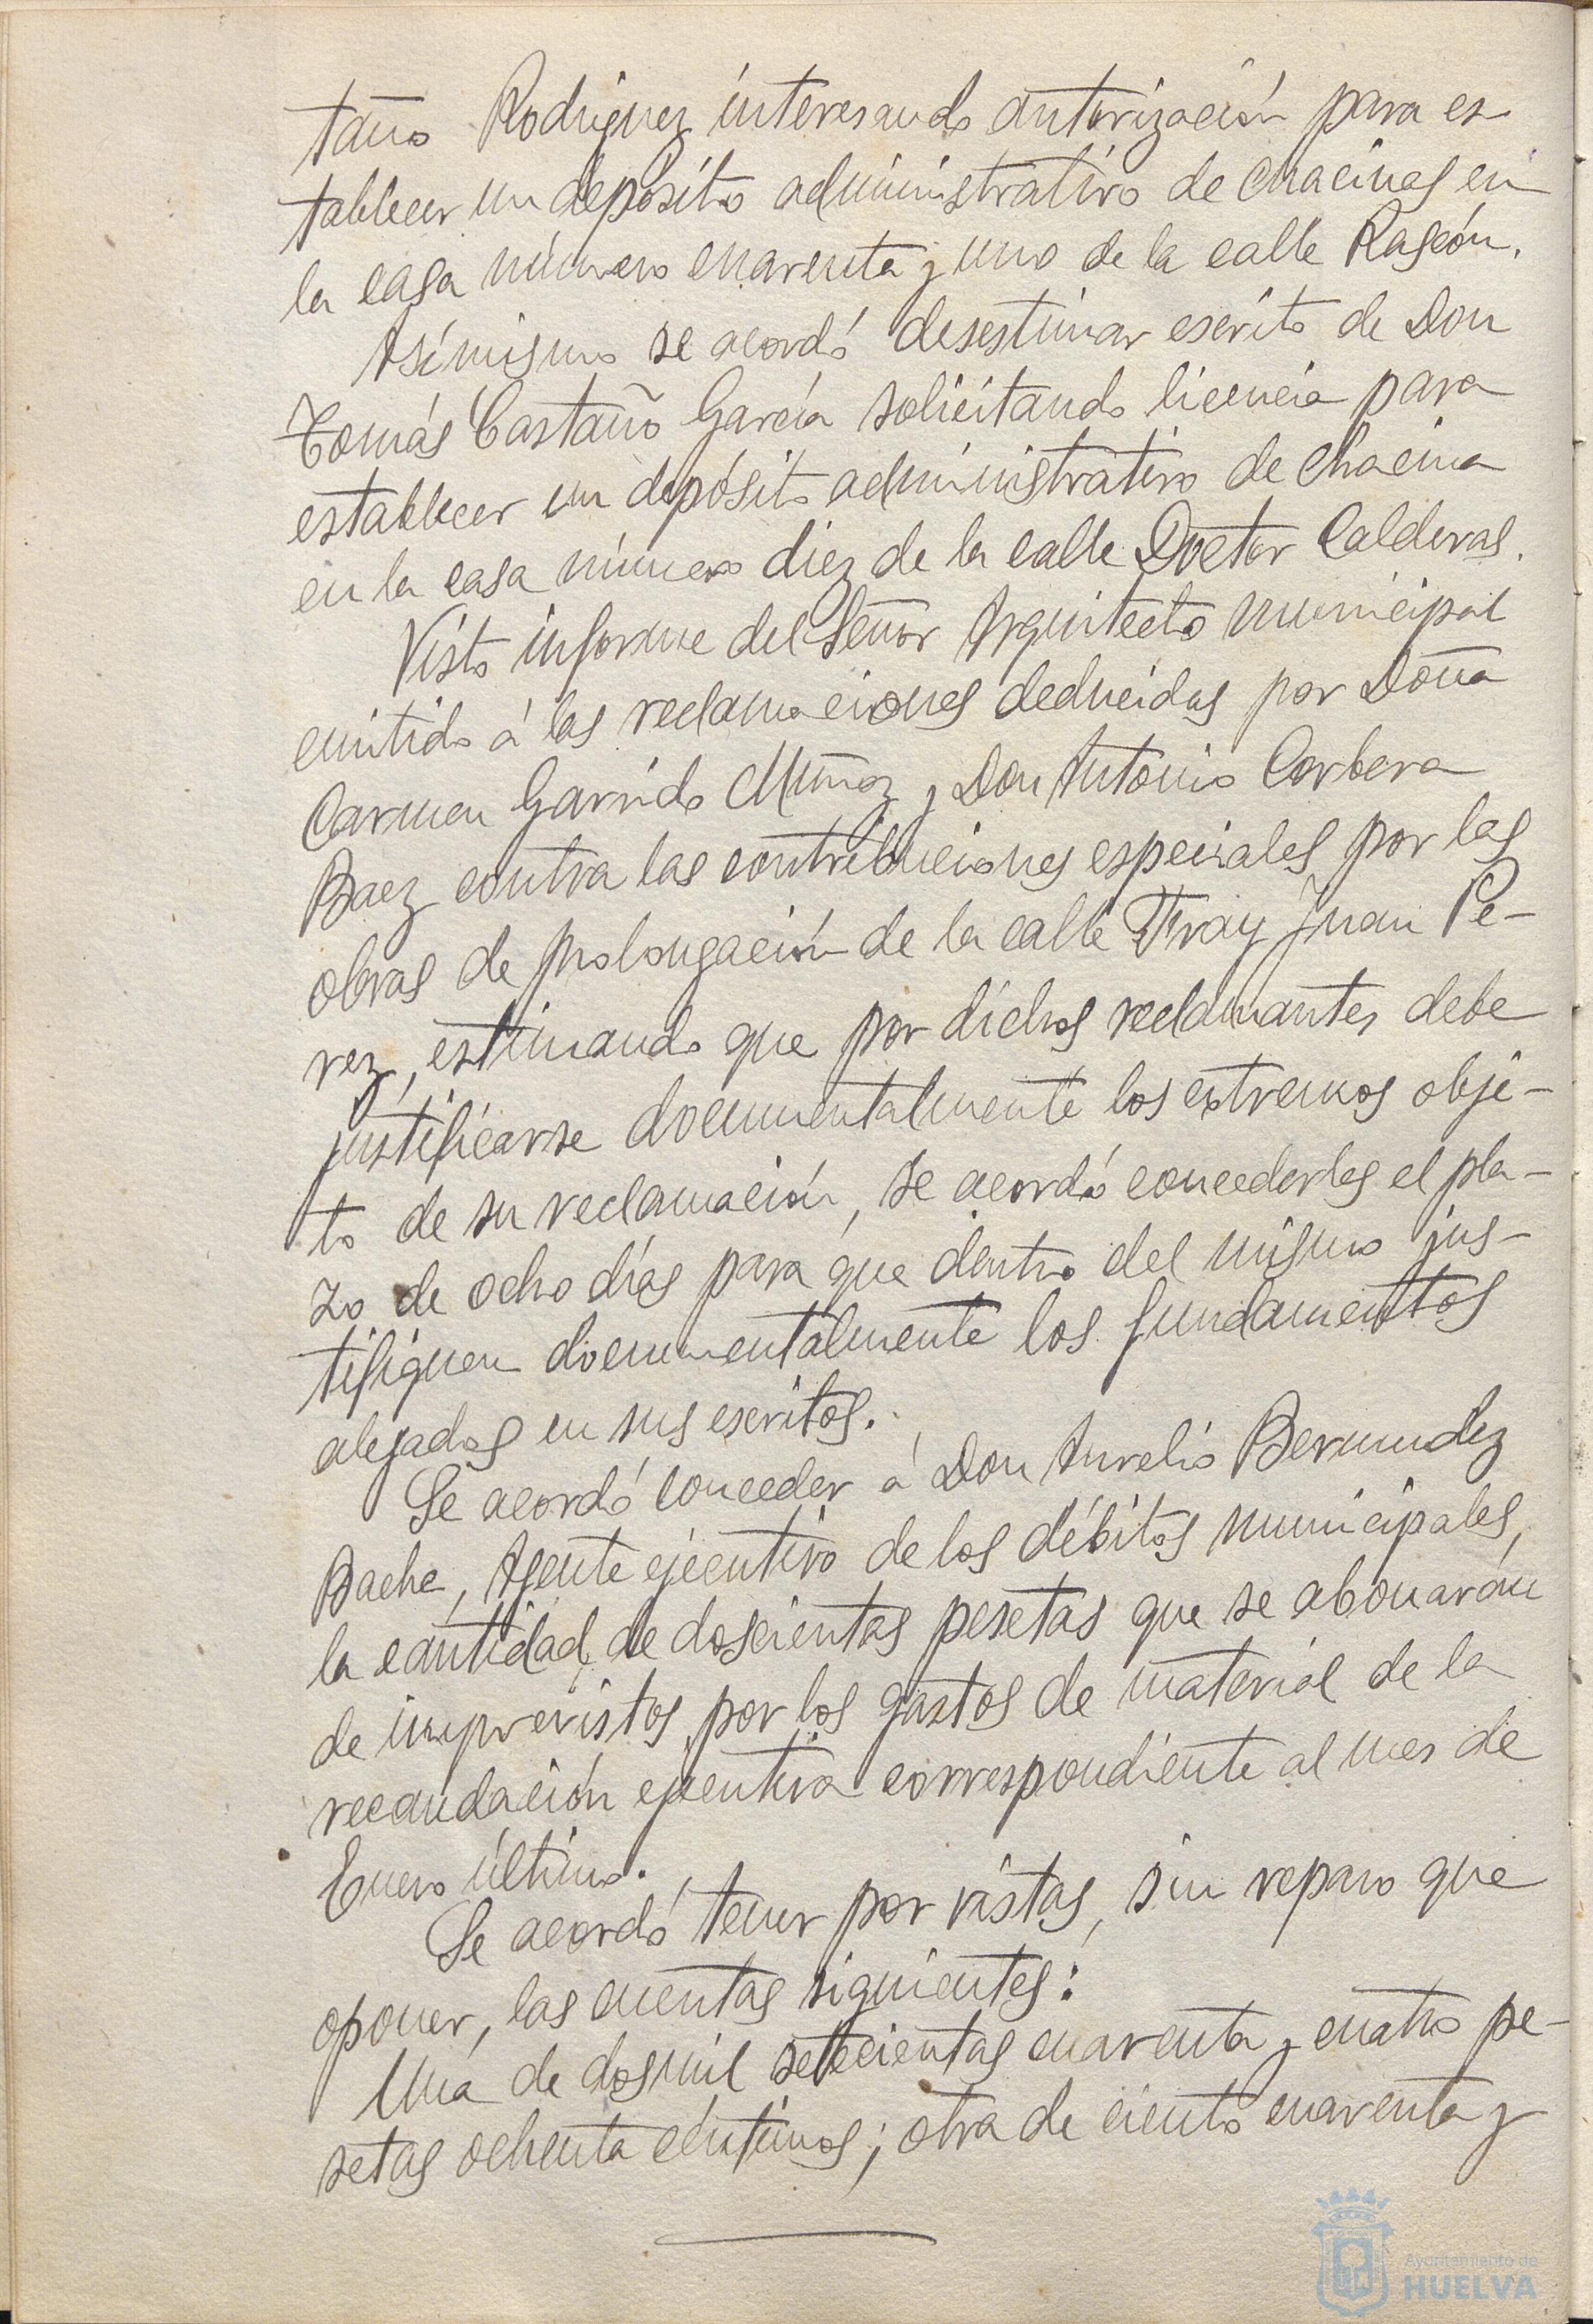 taño Rodriguez interesando autorización para es
tablecer un depósito administrativo de chacinas en
la casa número cuarenta y uno de la calle Rascón.
Asímismo se acordó desestimar escrito de Don
Tomás Castaño García solicitando licencia para
establecer un depósito administrativo de chacina
en la casa número diez de la calle Doctor Calderas.
Visto informe del Señor Arquitecto municipal
emitido á las reclamaciones deducidas por Doña
Carmen Garrido Muñoz y Don Antonio Corbera
Baez contra las contribuciones especiales por las
obras de prolongación de la calle Fray Juan Pe-
rez, estimando que por dichos reclamantes debe
justificarse documentalmente los extremos obje-
to de su reclamación, se acordó concederles el pla-
zo de ocho días para que dentro del mismo jus-
tifiquen documentalmente los fundamentos
alegados en sus escritos.
Se acordó conceder á Don Aurelio Bermudez
Bache, Agente ejecutivo de los débitos municipales,
la cantidad de doscientas pesetas que se abonarán
de imprevistos, por los gastos de material de la
recaudación ejecutiva correspondiente al mes de
Enero último.
Se acordó tener por vistas, sin reparo que
oponer, las cuentas siguientes:
Una de dosmil setecientas cuarenta y cuatro pe-
setas ochenta céntimos; otra de ciento cuarenta y
Ayuntamiento de
HUELVA